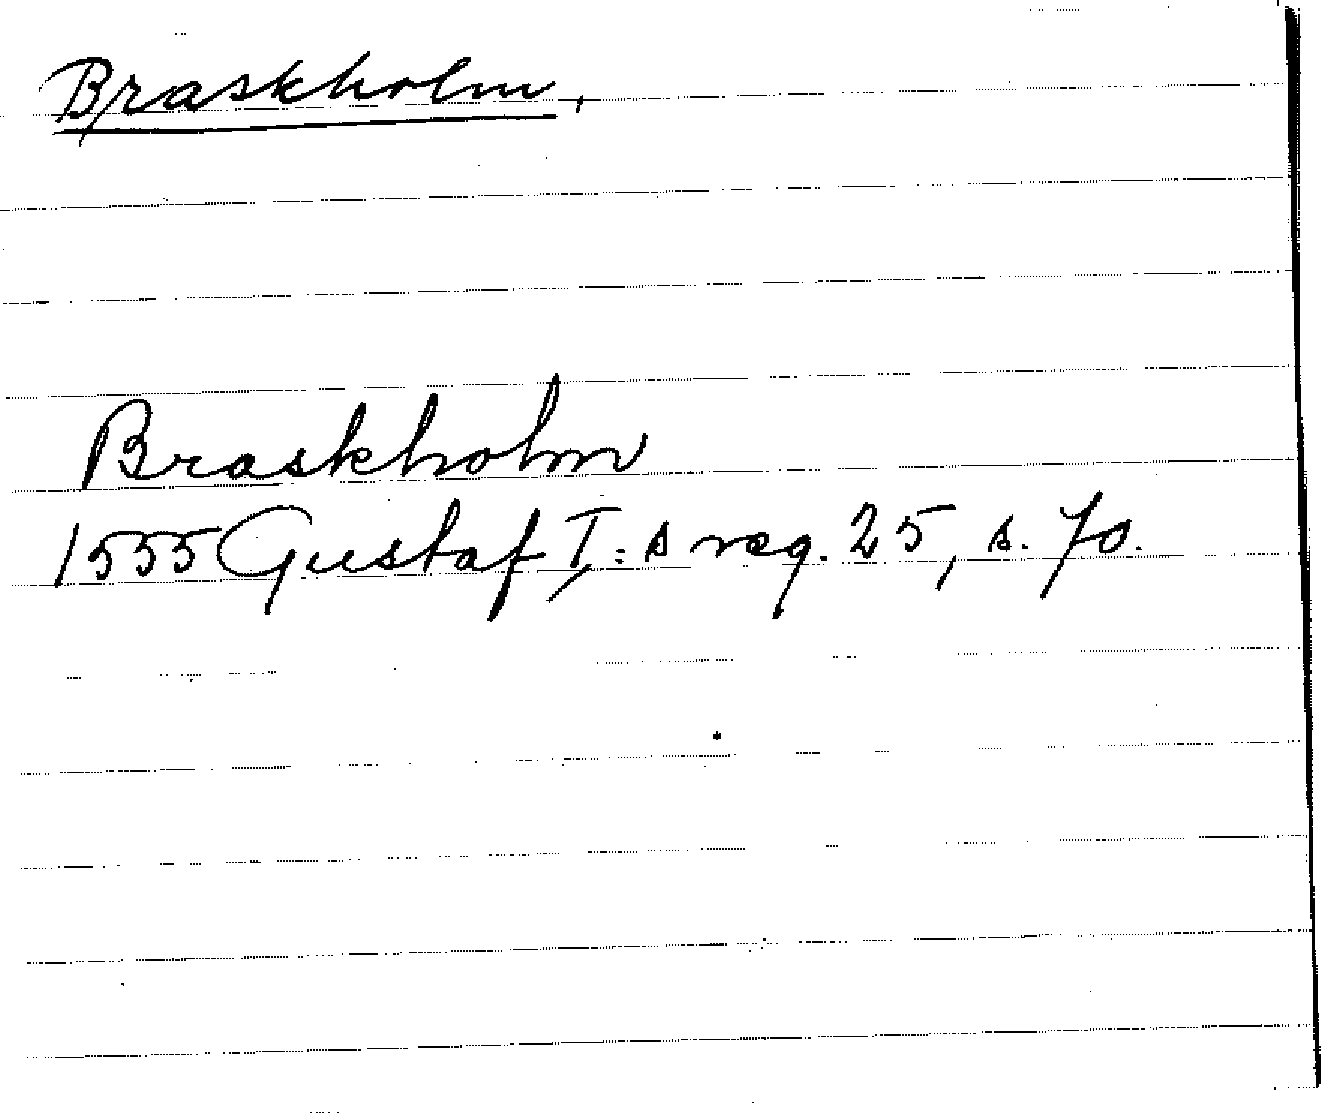 Braskholm.
Braskholm
1555 Gustaf I:s reg. 25, s. 70.